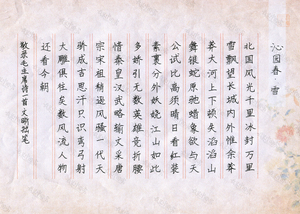 沁园春 雪
北国风光千里冰封万里
雪飘望长城内外惟余莽
莽大河上下顿失滔滔山
舞银蛇原驰蜡象欲与天
公试比高须晴日看红装
素裹分外妖娆江山如此
多娇引无数英雄竞折腰
惜秦皇汉武略输文采唐
宗宋祖稍逊风骚一代天
骄成吉思汗只识弯弓射
大雕俱往矣数风流人物
还看今朝
敬录毛主席诗一首 文 拙笔